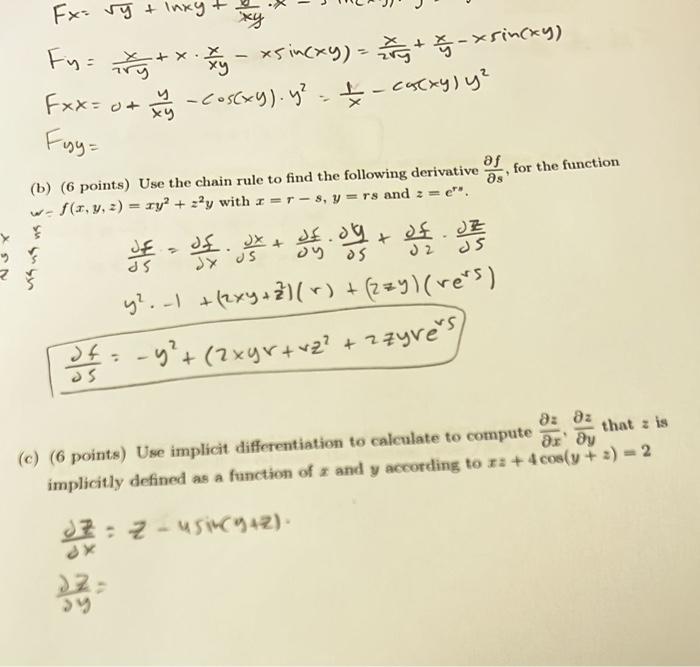 Fx = √y + lnxy + y/xy · x -
Fy = x/2√y + x · x/xy - xsin(xy) = x/2√y + x/y - xsin(xy)
Fxx = 0 + y/xy - cos(xy) · y² = 1/x - cos(xy) y²
Fyy =
(b) (6 points) Use the chain rule to find the following derivative ∂f/∂s, for the function
w = f(x, y, z) = xy² + z²y with x = r − s, y = rs and z = e^{rs}.
x rs
y rs
z rs
∂f/∂s = ∂f/∂x · ∂x/∂s + ∂f/∂y · ∂y/∂s + ∂f/∂z · ∂z/∂s
y² · -1 + (2xy+z²)(r) + (2zy)(re^{rs})
∂f/∂s = -y² + (2xyr + rz² + 2zyre^{rs}
(c) (6 points) Use implicit differentiation to calculate to compute ∂z/∂x, ∂z/∂y that z is
implicitly defined as a function of x and y according to xz + 4 cos(y + z) = 2
∂z/∂x = z - 4sin(y+z).
∂z/∂y =